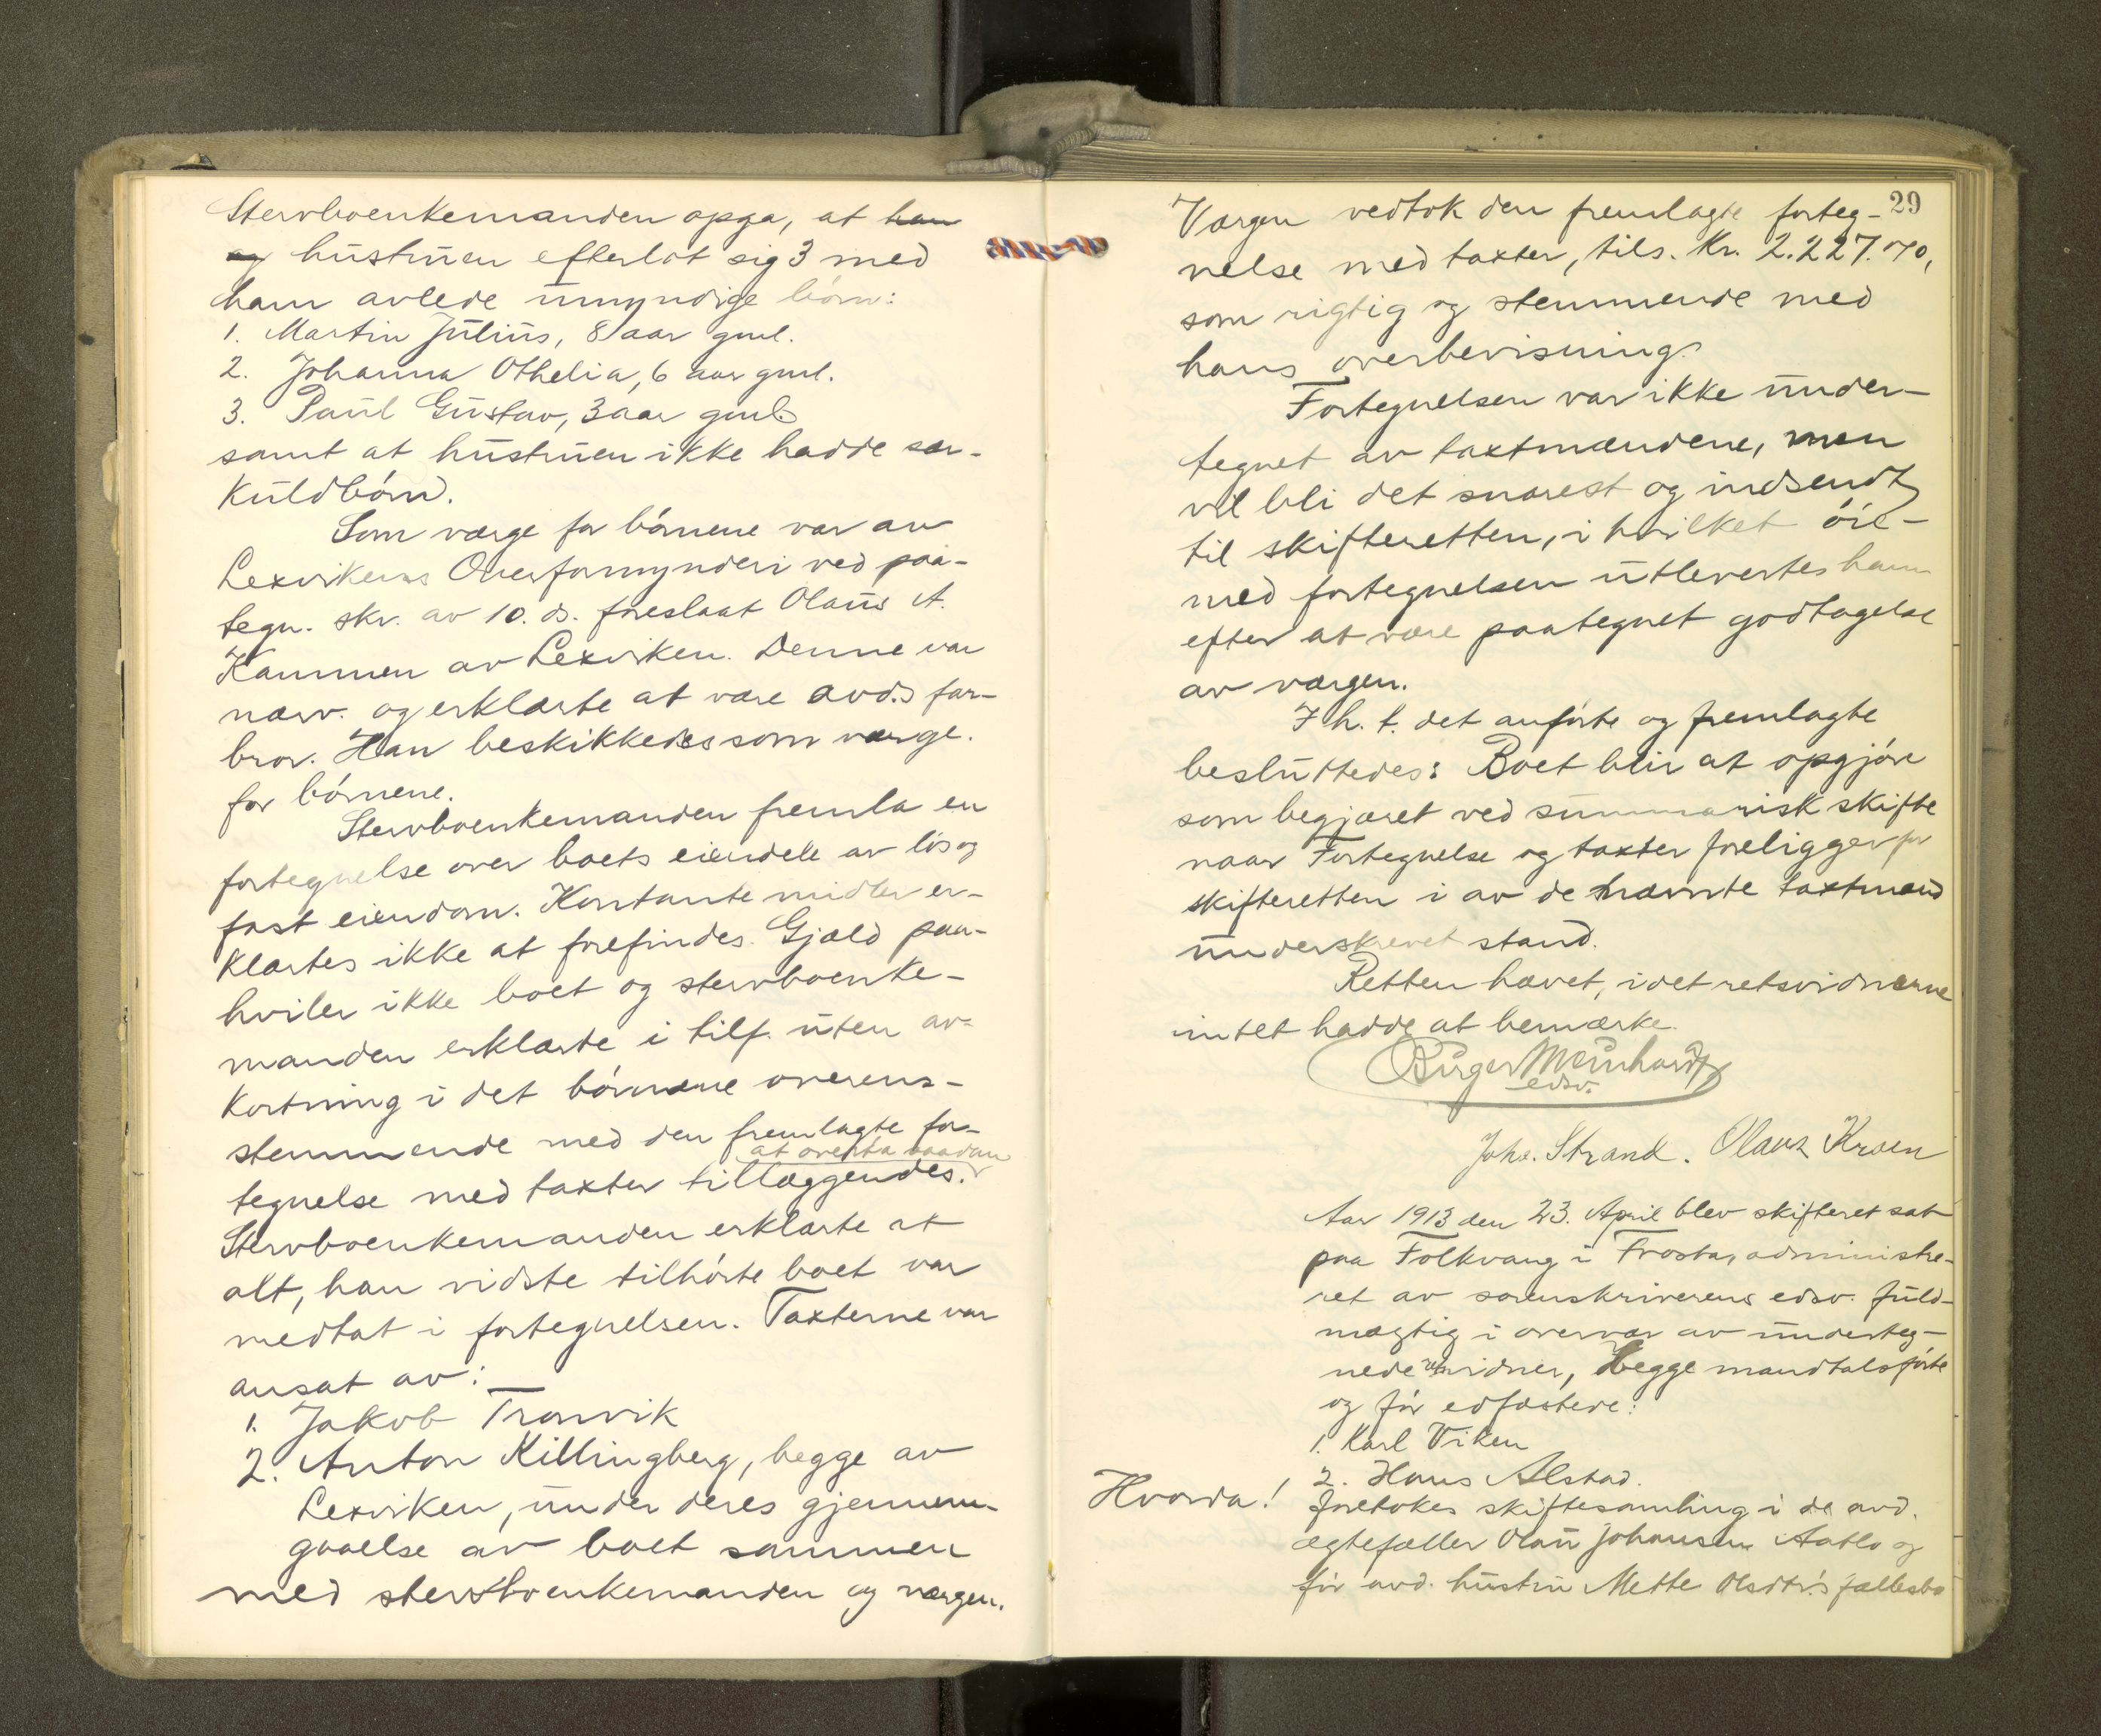 Stervboenkemanden opga, at han
og hustruen efterlot sig 3 med
ham avlede umyndige børn:
1. Martin Julius, 8 aar gml.
2. Johanna Othelia, 6 aar gml.
3. Paul Gustav, 3 aar gml
samt at hustruen ikke hadde sær-
kuldbørn.
Som værge for børnene var av
Lexvikens Overformynderi ved paa-
tegn. skr. av 10. ds. foreslaat Olaus A.
Kammen av Lexviken. Denne var
nærv. og erklærte at være avd.s far-
bror. Han beskikkedes som værge
for børnene.
Stervboenkemanden fremla en
fortegnelse over boets eiendele av løs og
fast eiendom. Kontante midler er-
klærtes ikke at forefindes. Gjæld paa-
hviler ikke boet og stervboenke-
manden erklærte i tilf. uten av-
kortning i det børnene overens-
stemmende med den fremlagte for-
at overta saadan
tegnelse med taxter tillæggendes.
Stervboenkemanden erklærte at
alt, han vidste tilhørte boet var
medtat i fortegnelsen. Taxterne var
ansat av:
1. Jakob Tronvik
2. Anton Killingberg, begge av
Lexviken, under deres gjennem-
gaaelse av boet sammen
med stervboenkemanden og værgen.
29
Værgen vedtok den fremlagte forteg-
nelse med taxter, tils. Kr. 2.227.70,
som rigtig og stemmende med
hans overbevisning.
Fortegnelsen var ikke under-
tegnet av taxtmændene, men
vil bli det snarest og indsendt
til skifteretten, i hvilket øie-
med fortegnelsen utlevertes ham
efter at være paategnet godtagelse
av værgen.
I h. t. det anførte og fremlagte
besluttedes: Boet blir at opgjøre
som begjæret ved summarisk skifte
naar Fortegnelse og taxter foreligger for
skifteretten i av de nævnte taxtmænd
underskrevet stand.
Retten hævet, idet retsvidnerne
intet hadde at bemærke.
Birger Meinhardt
edsv.
Johs. Strand. Olaus Kroen
Aar 1913 den 23. April blev skifteret sat
paa Folkvang i Frosta, administre-
ret av sorenskriverens edsv. fuld-
mægtig i overvær av underteg-
nede vidner, begge mandtalsførte
og før edfæstede:
1. Karl Viken
2. Hans Alstad.
Hvorda!
foretokes skiftesamling i de avd.
ægtefæller Olau Johansen Aatlo og
før avd. hustru Mette Olsdtr.s fællesbo